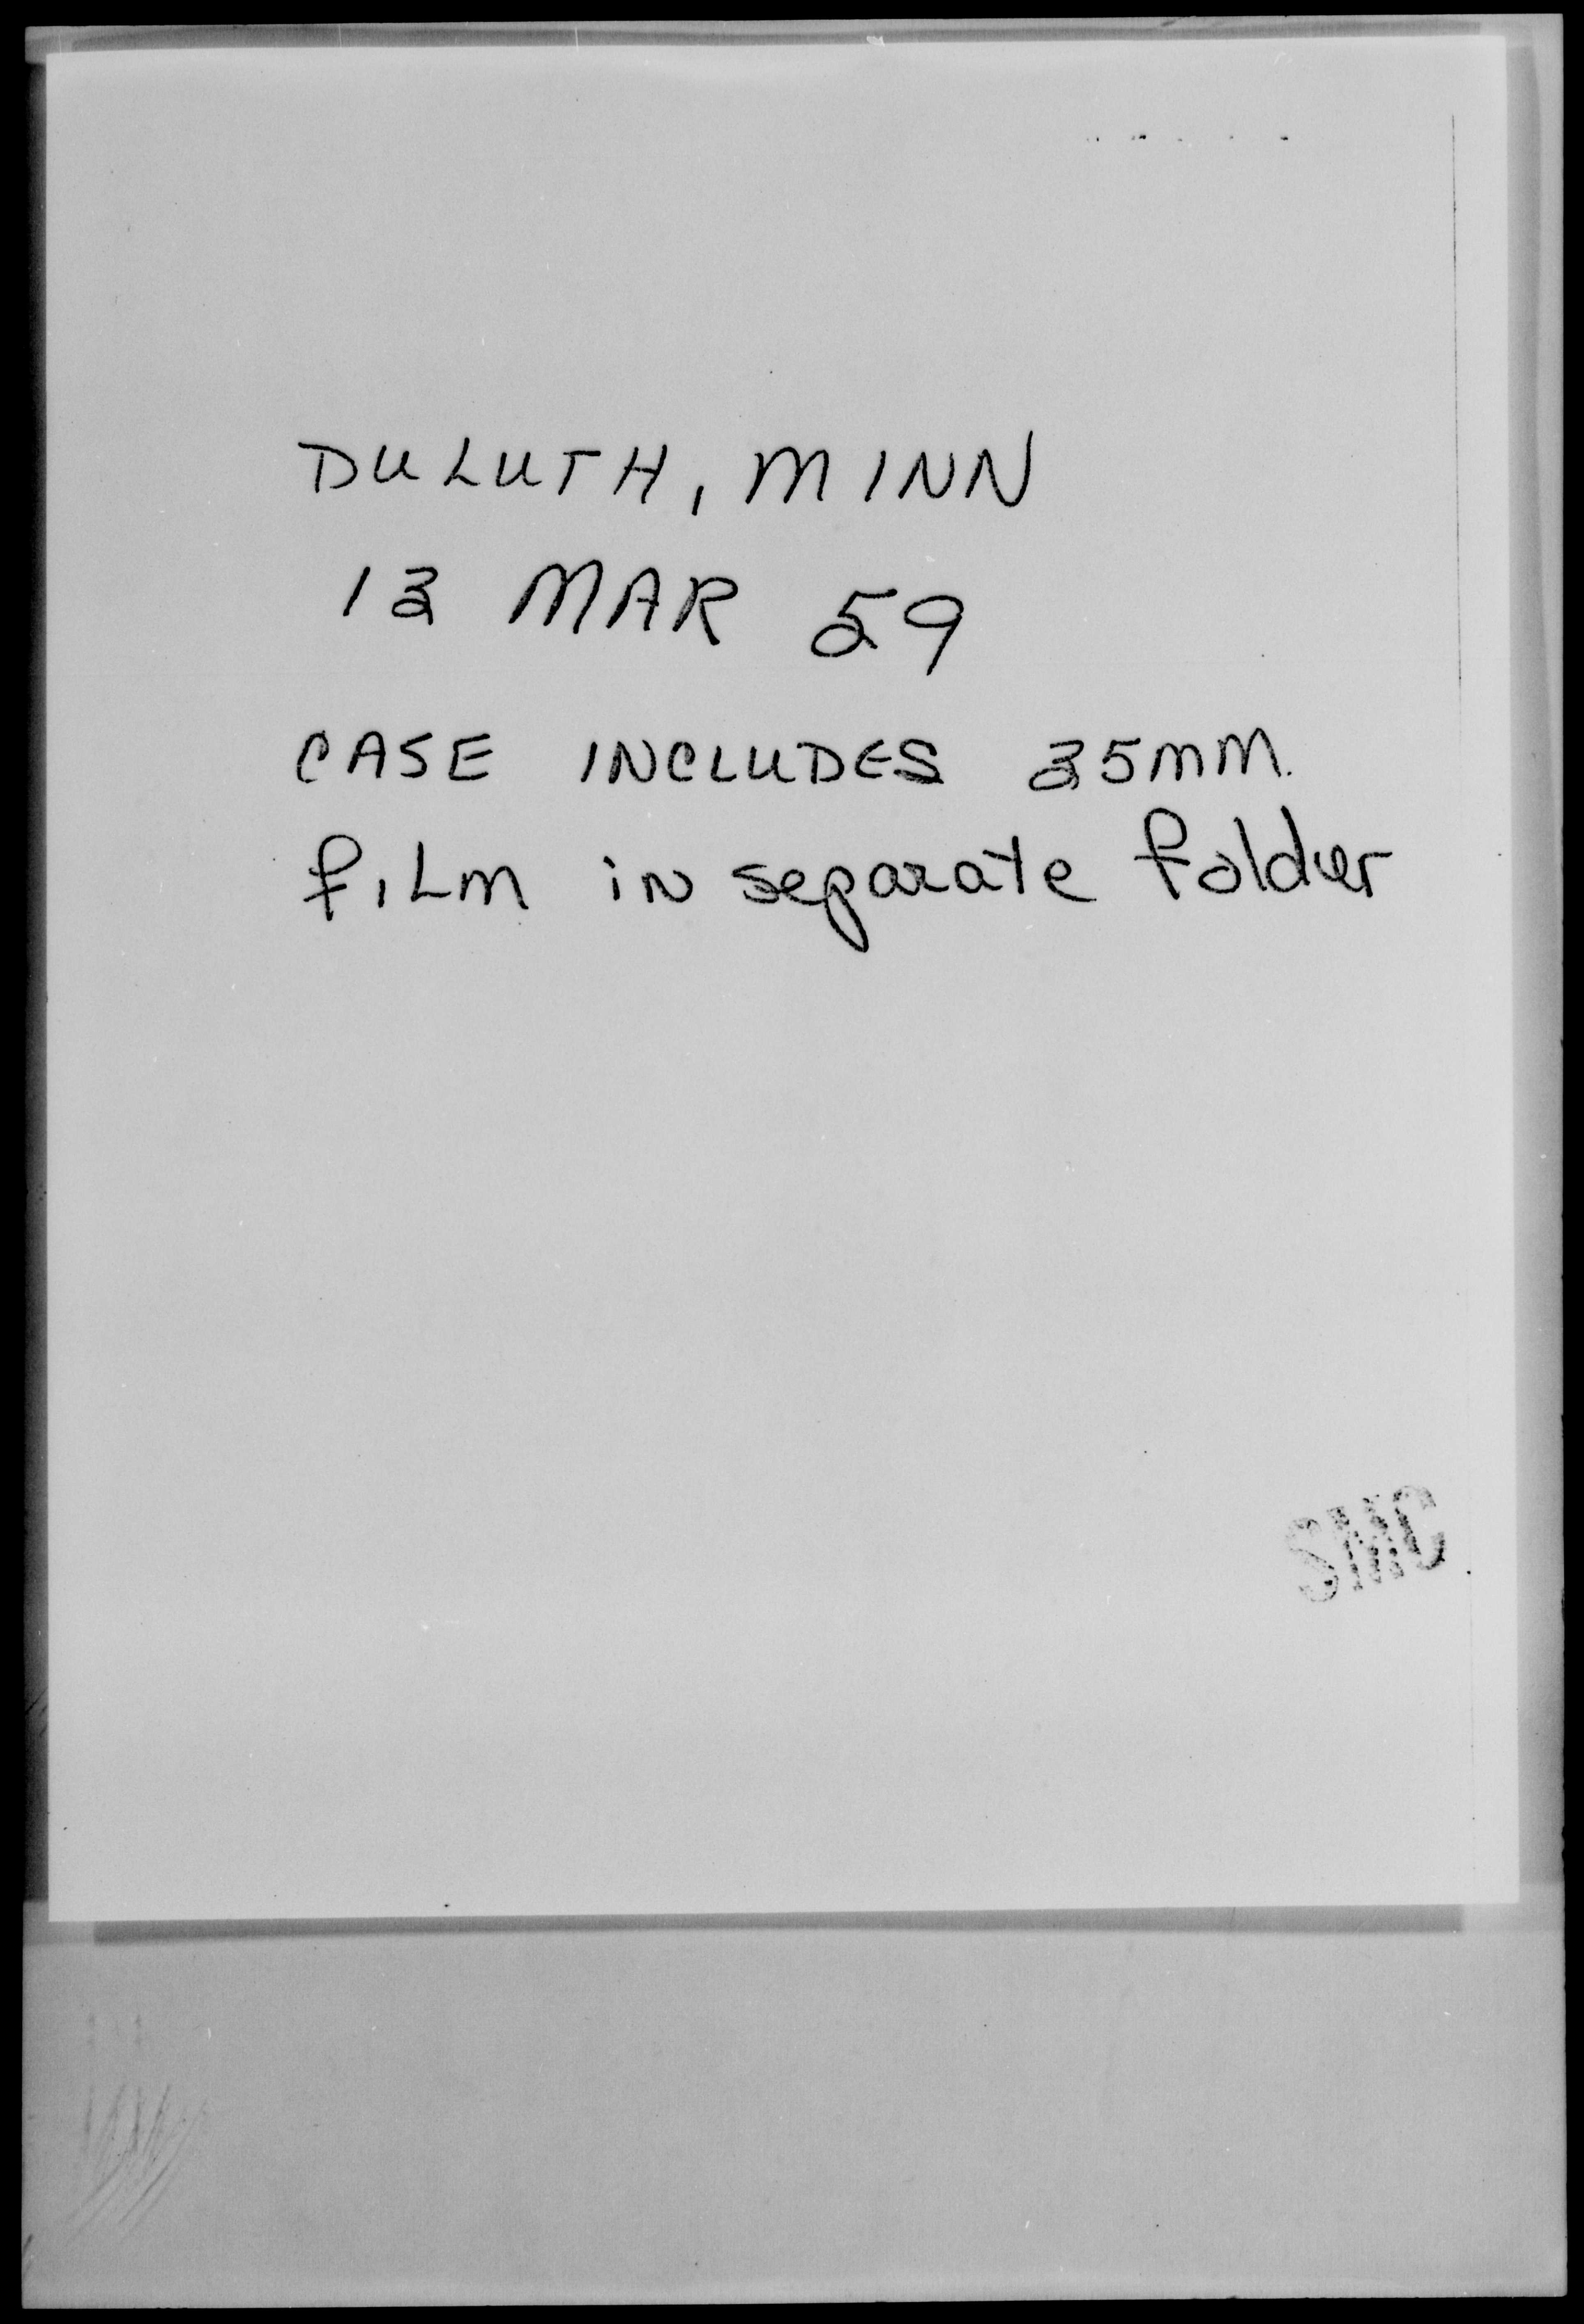 DULUTH, MINN
13 MAR 59
CASE INCLUDES 35mm
film in separate folder
SMC